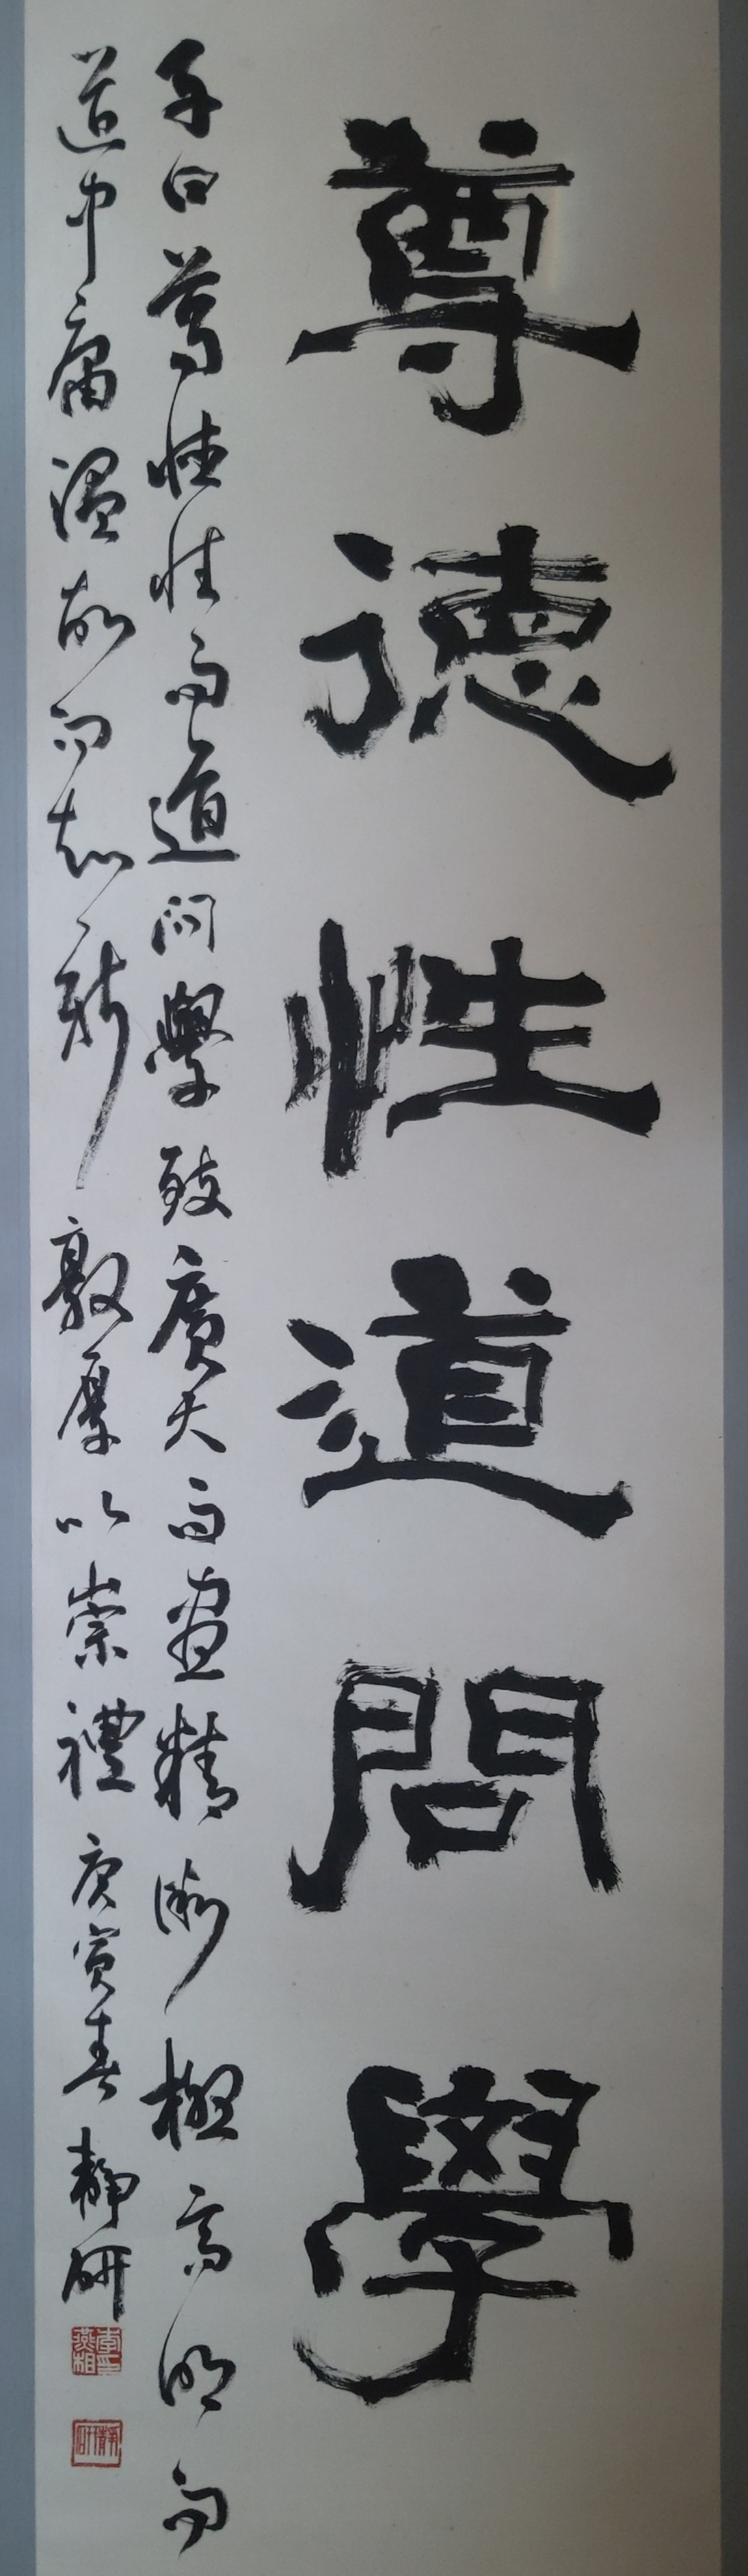 尊德性道問學
子曰尊德性而道問學致廣大而盡精微極高明而
道中庸溫故而知新敦厚以崇禮庚寅春靜研
靜研